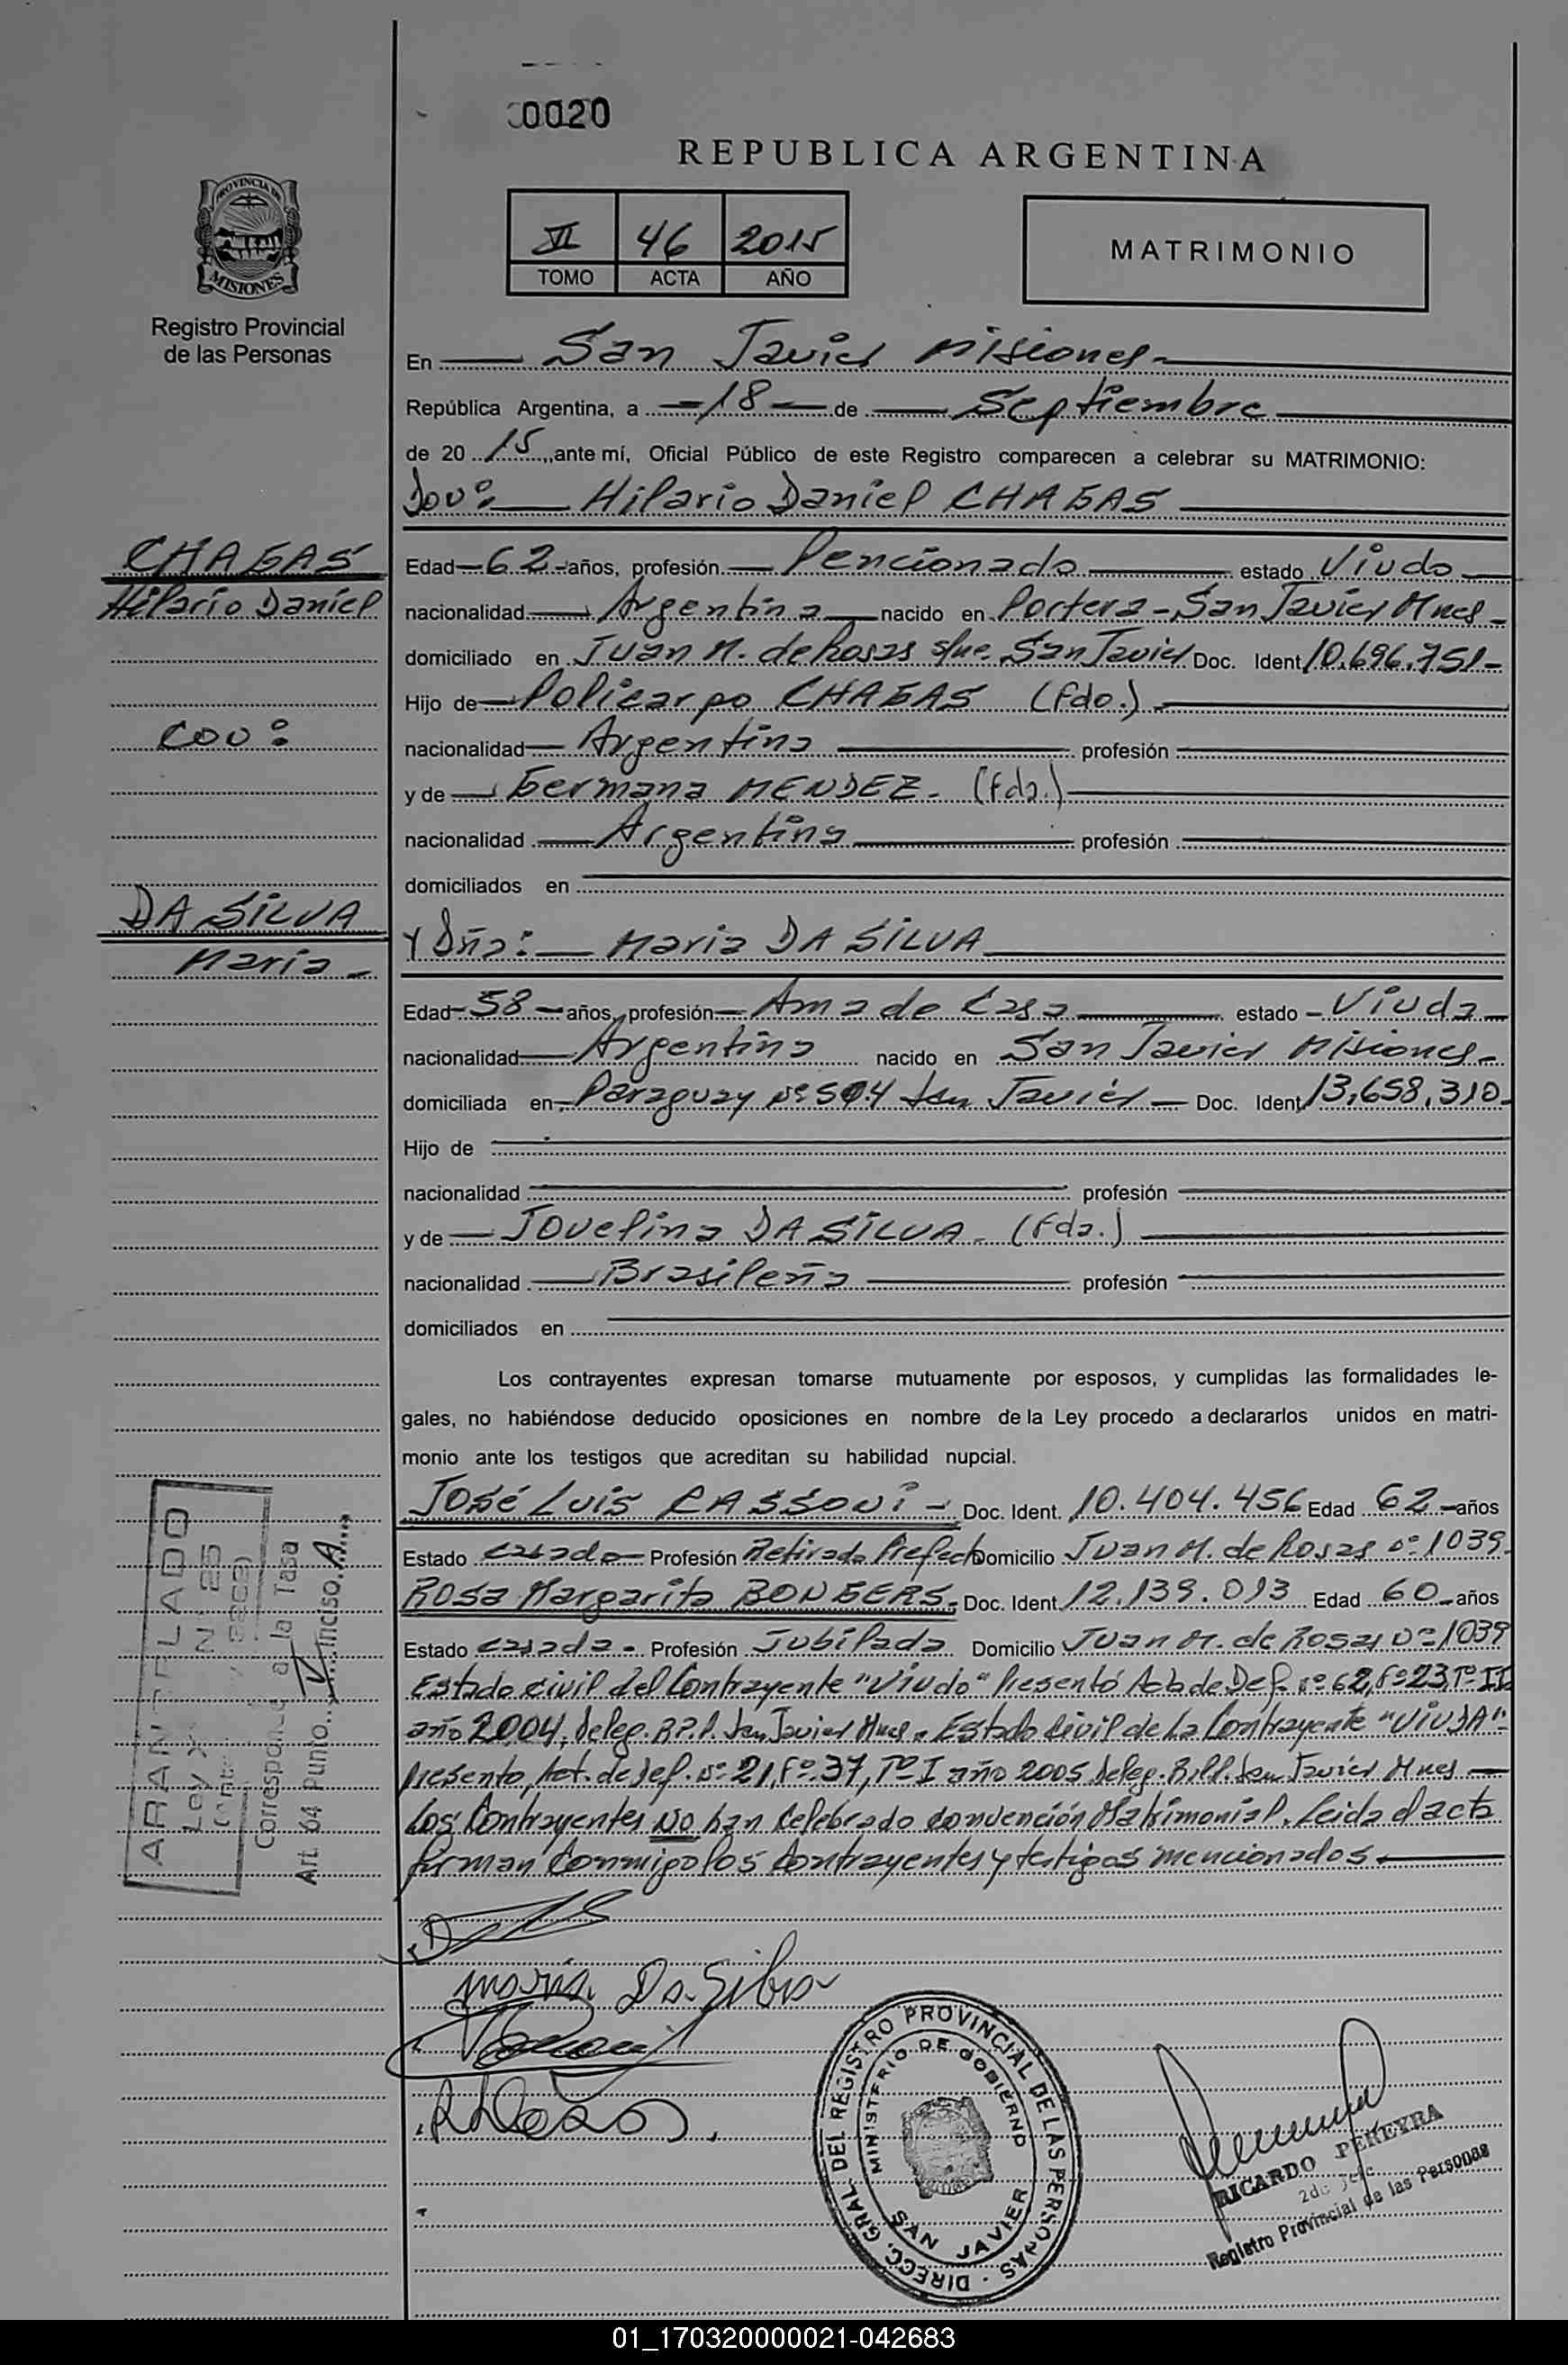 0020
REPUBLICA ARGENTINA
PROVINCIA DE
MISIONES
Registro Provincial
de las Personas
VI 46 2015
TOMO ACTA AÑO
MATRIMONIO
En San Javier Misiones-
República Argentina, a -18- de Septiembre
de 20 15 ante mí, Oficial Público de este Registro comparecen a celebrar su MATRIMONIO:
Hilario Daniel CHAGAS
CHAGAS
Hilario Daniel
Edad 62 años, profesión Pencionado estado Viudo
nacionalidad Argentina nacido en Portera - San Javier Mnes-
domiciliado en Juan M. de Rosas s/ne. San Javier Doc. Ident. 10.696.751-
Hijo de Policarpo CHAGAS (fdo.)
con:
nacionalidad Argentina profesión
y de Germana MENDEZ. (fda.)
nacionalidad Argentina profesión
domiciliados en
DA SILVA
María-
Y Dña: María DA SILVA
Edad 58 años, profesión Ama de Casa estado - Viuda
nacionalidad Argentina nacido en San Javier Misiones-
domiciliada en Paraguay nº 504 San Javier Doc. Ident. 13,658,310-
Hijo de
nacionalidad profesión
y de Jovelina DA SILVA. (fda.)
nacionalidad Brasileña profesión
domiciliados en
Los contrayentes expresan tomarse mutuamente por esposos, y cumplidas las formalidades le-
gales, no habiéndose deducido oposiciones en nombre de la Ley procedo a declararlos unidos en matri-
monio ante los testigos que acreditan su habilidad nupcial.
JOSÉ LUIS CASSONI - Doc. Ident. 10.404.456 Edad 62 años
Estado casado Profesión Retirado Prefect Domicilio Juan M. de Rosas nº 1039
ROSA Margarita BONGERS. Doc. Ident. 12.139.013 Edad 60 años
Estado casada - Profesión Jubilada Domicilio Juan M. de Rosas nº 1039
Estado civil del Contrayente "Viudo" Presentó Acta de Def. nº 62, Fº 23, Tº II
año 2004, deleg. R.P.P. San Javier Mnes. Estado Civil de La Contrayente "VIUDA"-
Presento, Act. de def. nº 21, Fº 37, Tº I año 2005 deleg. R.P.P. San Javier Mnes
Los Contrayentes NO han Celebrado convención Matrimonial. Leida el acta
firman Conmigo los Contrayentes y testigos mencionados.
ARANCELADO
Corresponde a la Tasa
Art. 64 Punto V Inciso A
María Da Silva
DIRECC. GRAL. DEL REGISTRO PROVINCIAL DE LAS PERSONAS
MINISTERIO DE GOBIERNO
SAN JAVIER
RICARDO PEREYRA
2do Jefe
Registro Provincial de las Personas
01_170320000021-042683